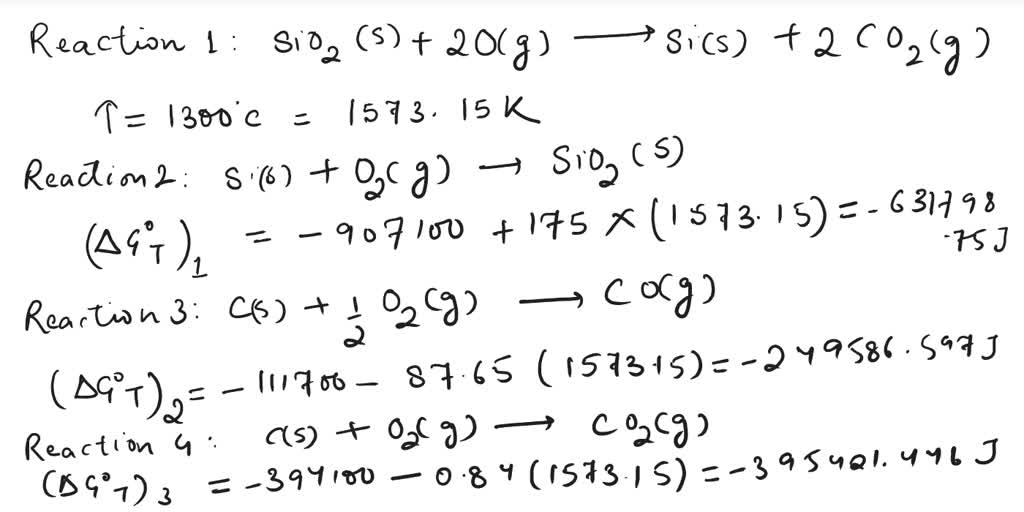 Reaction 1: SiO₂(s) + 2O(g) ⟶ Si(s) + 2CO₂(g)
T = 1300°C = 1573.15K
Reaction 2: Si(s) + O₂(g) → SiO₂(s)
(ΔG°T)₁ = -907100 + 175 × (1573.15) = -631798.75J
Reaction 3: C(s) + 1/2 O₂(g) ⟶ CO(g)
(ΔG°T)₂ = -111700 - 87.65 (1573.15) = -249586.597J
Reaction 4: C(s) + O₂(g) ⟶ CO₂(g)
(ΔG°T)₃ = -394100 - 0.84 (1573.15) = -395421.446J